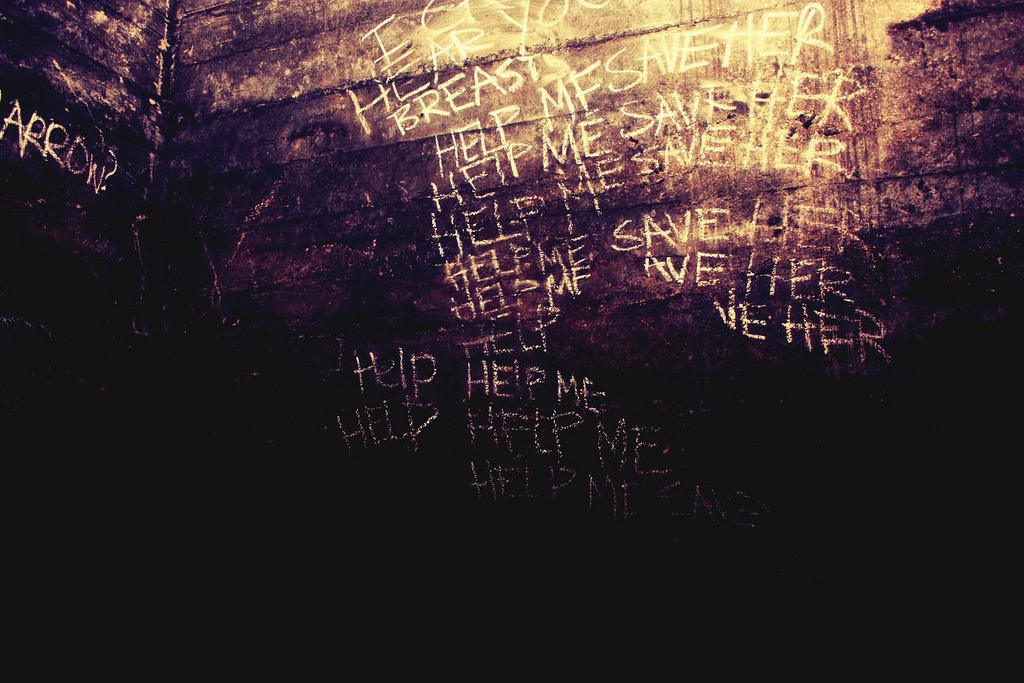 ARROW
YOU
EAR
BREAST
HELP ME SAVE HER
HELP ME SAVE HER
HELP ME SAVE HER
HELP ME SAVE HER
HELP ME AVE HER
HELP VE HER
HELP HELP ME
HELP HELP ME
HELP ME